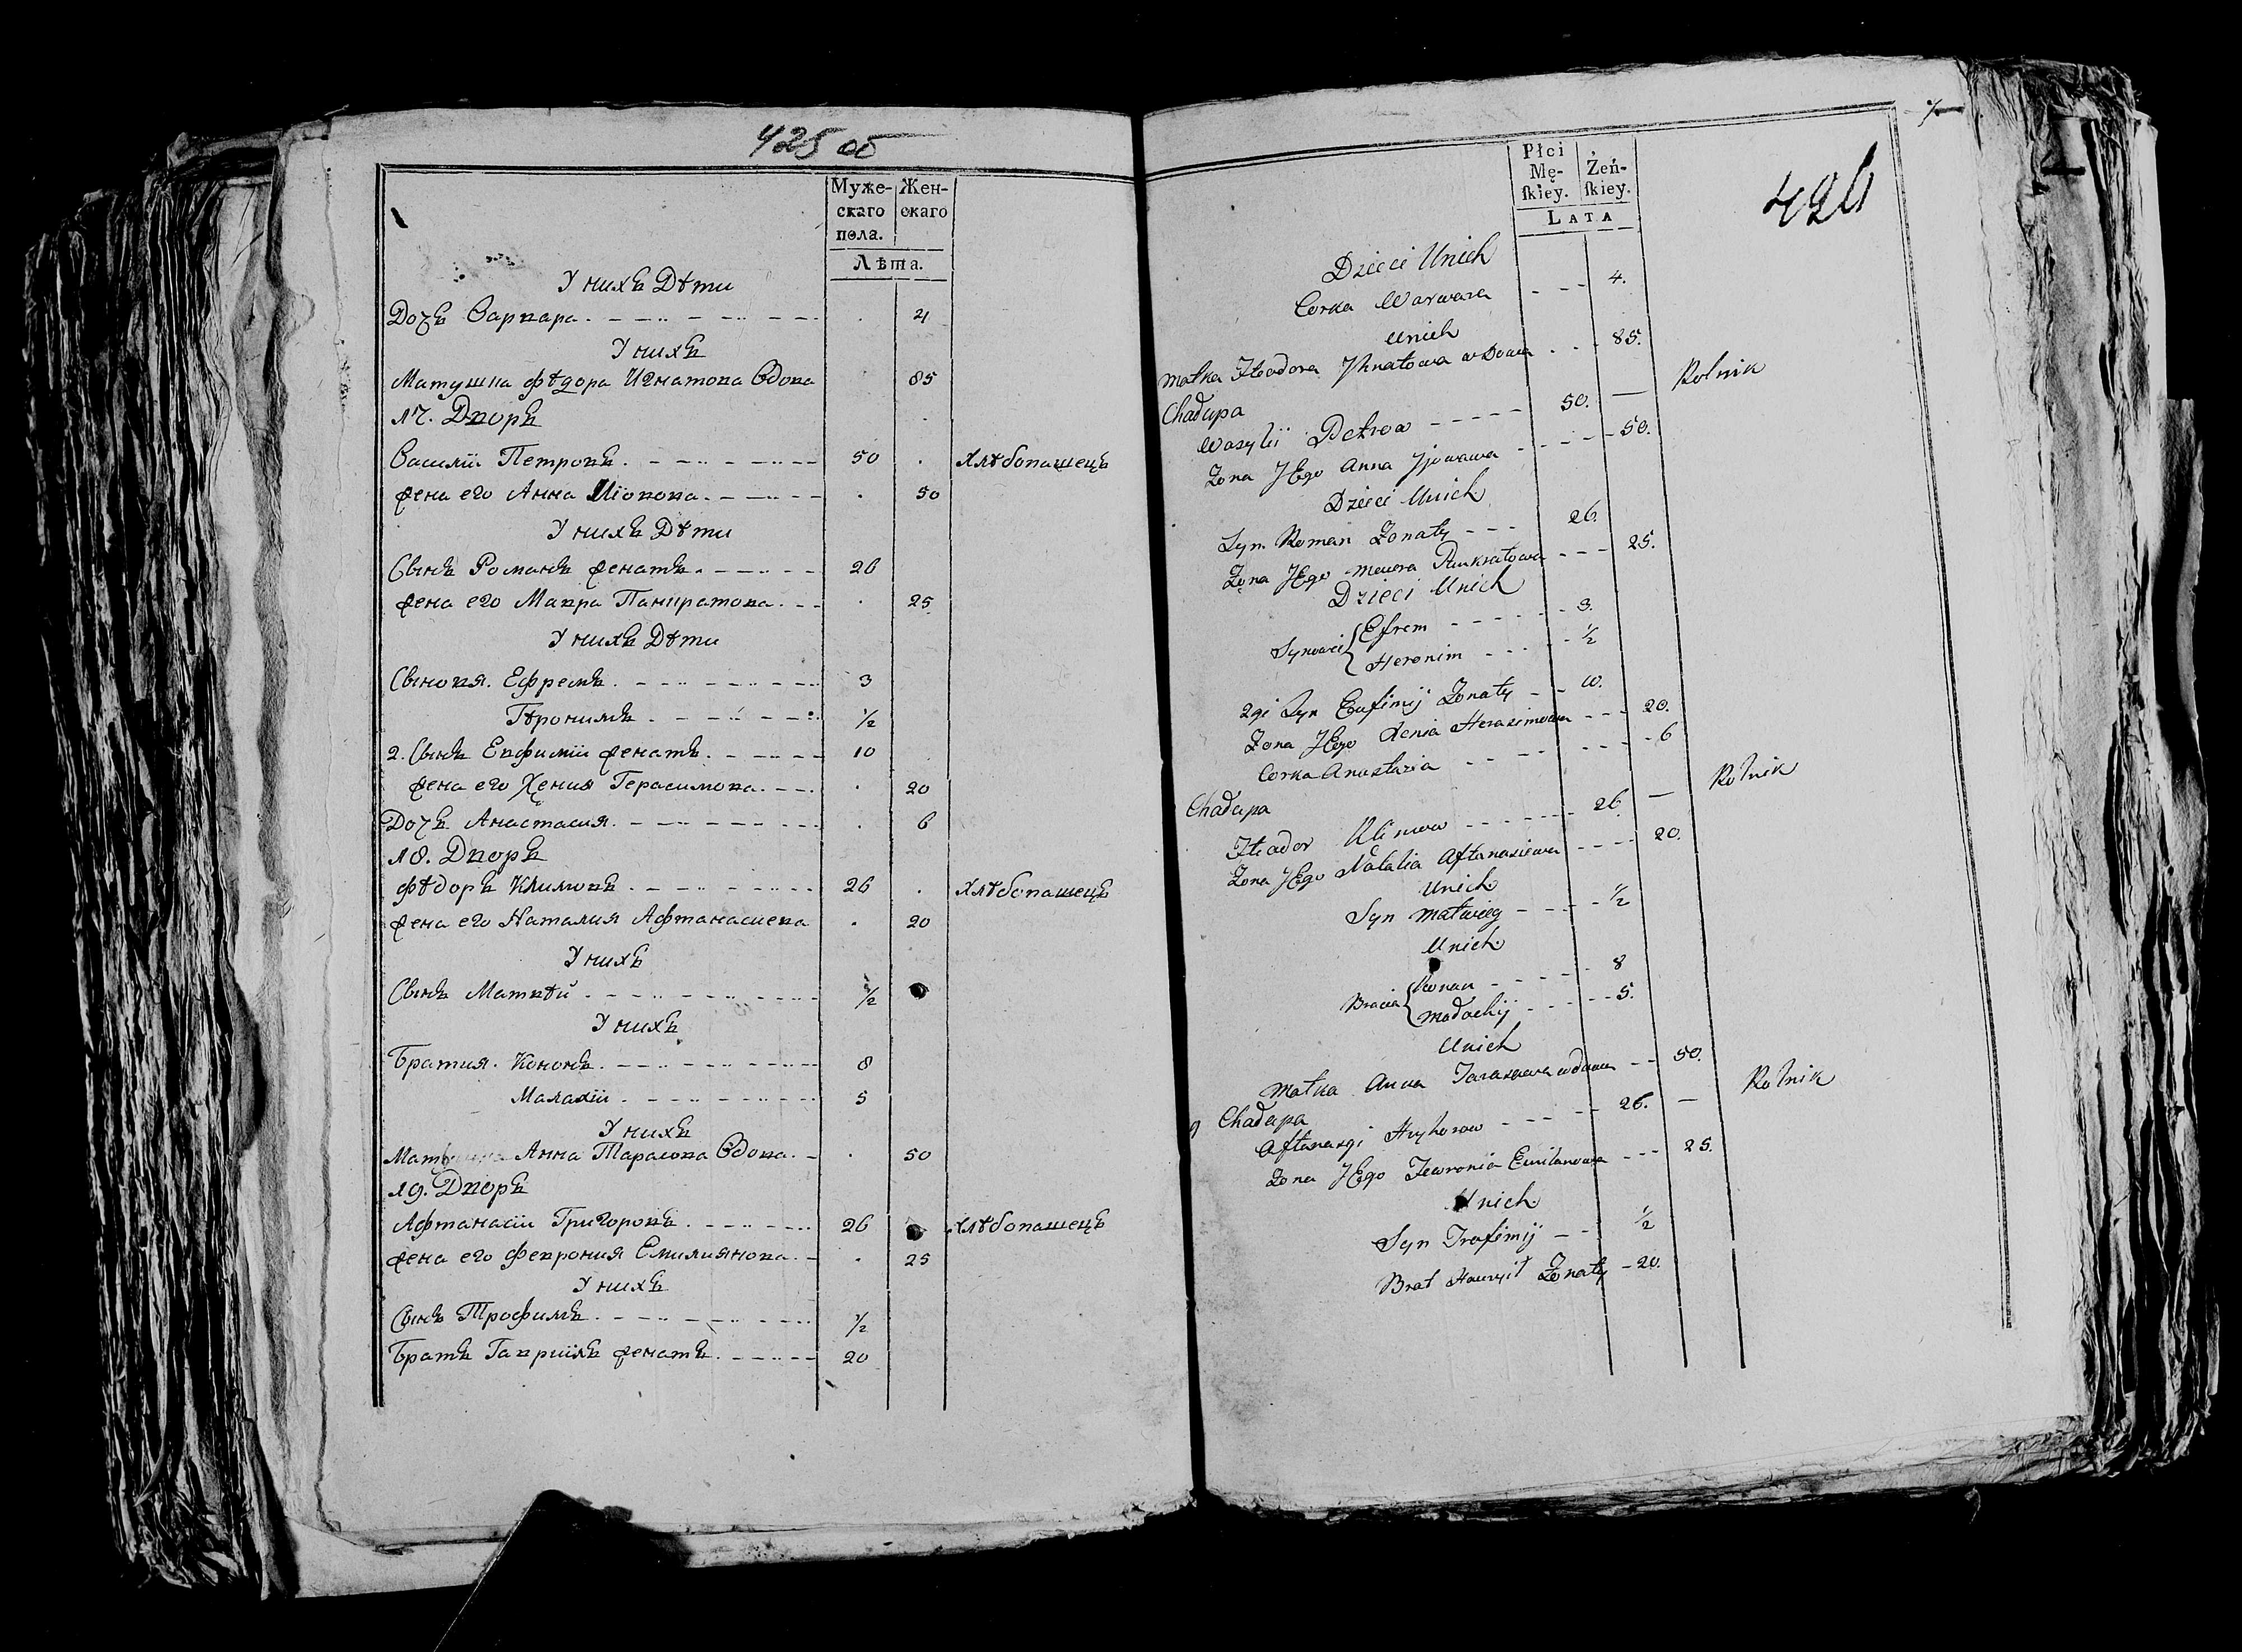 425 об
Муже-
скаго
пола.
Жен-
скаго
Лѣта.
У нихъ Дѣти
Дочь Варвара 4
У нихъ
Матушка Фѣдора Игнатова Вдова 85
17. Дворъ
Василій Петровъ 50 Хлѣбопашецъ
Жена его Анна Міокова 50
У нихъ Дѣти
Сынъ Романъ женатъ 26
Жена его Мавра Панкратова 25
У нихъ Дѣти
Сыновья. Ефремъ 3
Гѣронимъ ½
2. Сынъ Евфимій женатъ 10
Жена его Ксения Герасимова 20
Дочь Анастасия 6
18. Дворъ
Фѣдоръ Климовъ 26 Хлѣбопашецъ
Жена его Наталия Афтанасиева 20
У нихъ
Сынъ Матвѣй ½
У нихъ
Братия. Кононъ 8
Малахій 5
У нихъ
Анна Тарасова Вдова 50
19. Дворъ
Афтанасій Григоровъ 26 Хлѣбопашецъ
Жена его Феврония Емилиянова 25
У нихъ
Сынъ Трофимъ ½
Братъ Гавриилъ женатъ 20
426
Płci
Mę-
ſkiey.
Żeń-
ſkiey.
LATA
Dzieci Unich
Corka Warwara 4.
Unich
Matka Fteodora Ihnatowa wdowa 85.
Chałupa
Wasylii Petrow 50. — Rolnik
Zona JEgo Anna 50.
Dzieci Unich
Syn Roman Zonaty 26.
Zona JEgo Mawra Pankratowa 25.
Dzieci Unich
Synowei Efrem 3.
Heronim ½
2gi Syn Eufimij Zonaty 10.
Zona JEgo Xenia Herasimowa 20.
Corka Anastazia 6
Chałupa
Fteodor Klimow 26 — Rolnik
Zona JEgo Natalia Aftanasiewa 20.
Unich
Syn Matwiey ½
Unich
Bracia Konan 8
Małachij 5.
Unich
Matka Anna Tarasowa wdowa 50.
Chałupa
Aftanazi Hryhorow 26. — Rolnik
Zona JEgo Fewronia Emilanowa 25.
Unich
Syn Trofimij ½
Brat Hawryił Zonaty 20.